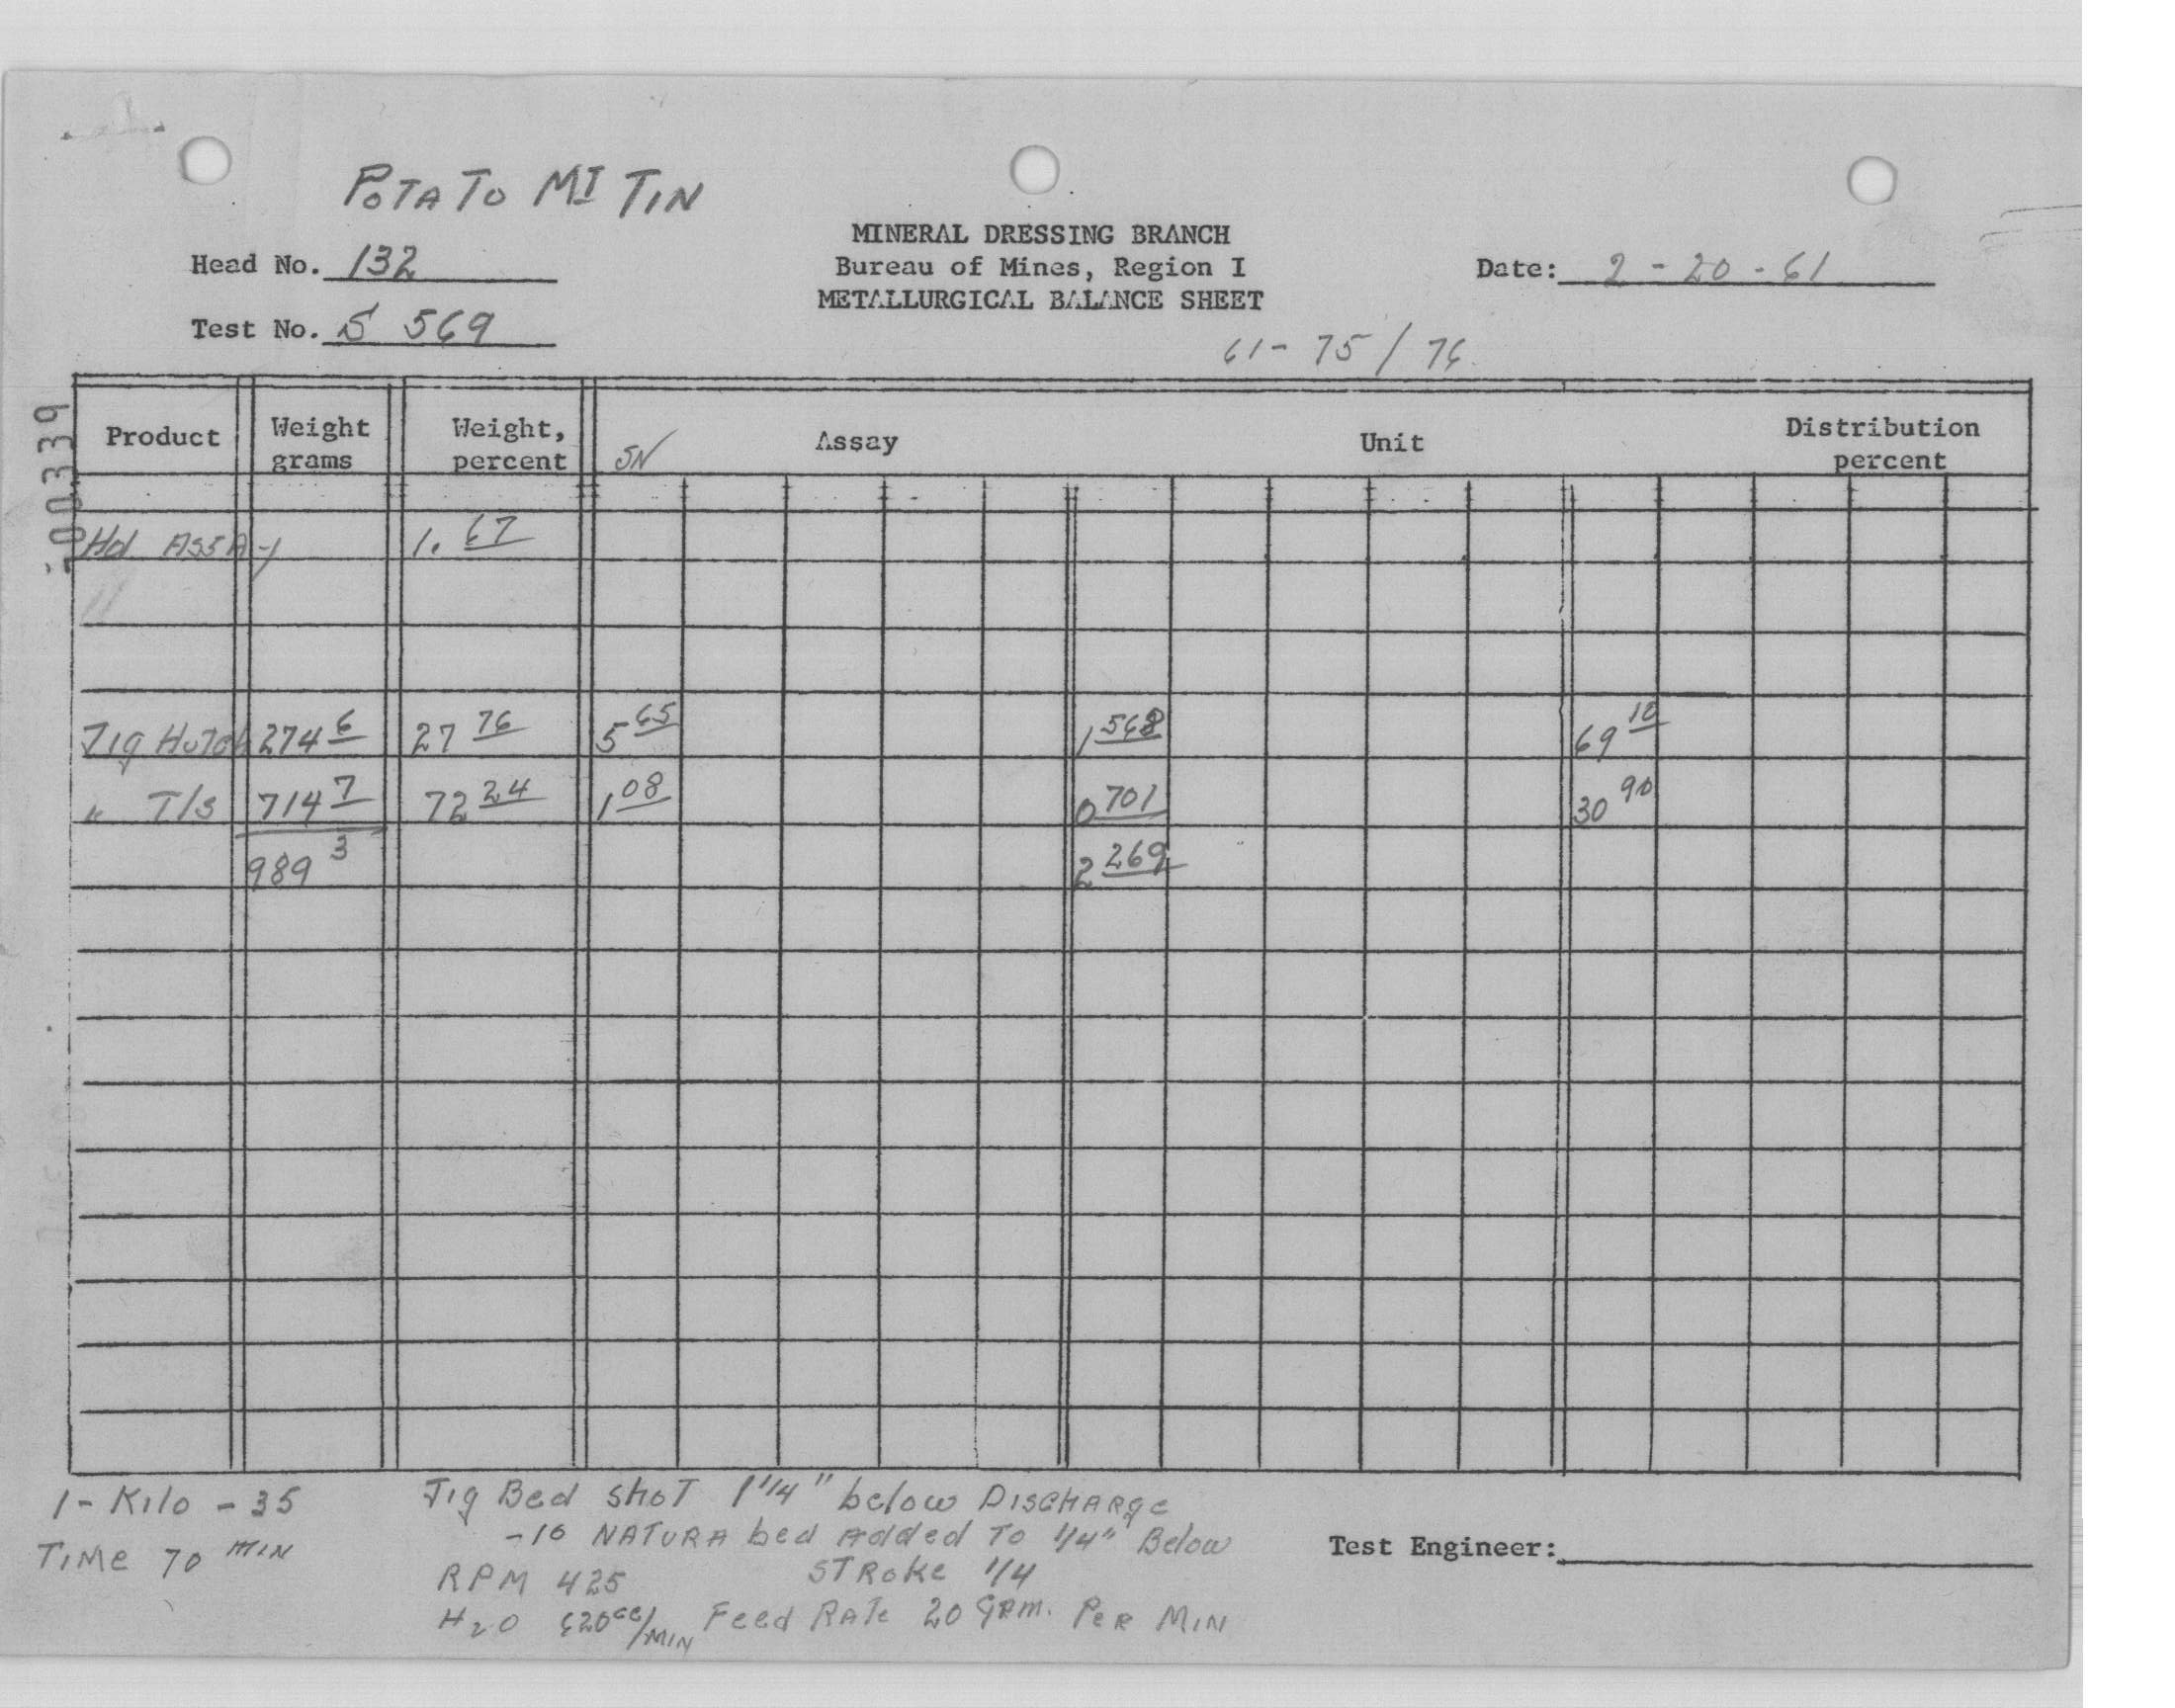 POTATO MT TIN
MINERAL DRESSING BRANCH
Head No. 132 Bureau of Mines, Region I Date: 2-20-61
METALLURGICAL BALANCE SHEET
Test No. S 569
61-75/76
00339
Product Weight grams Weight, percent SN Assay Unit Distribution percent
Hd ASSAy 1.67
Jig Hutch 274 6 27 76 5 65 1 568 69 10
" T/s 714 7 72 24 1 08 0 701 30 90
989 3 2 269
1- Kilo - 35 Jig Bed shoT 1 1/4" below DISCHARge
-10 NATURA bed Added To 1/4" Below
TIMe 70 MIN Test Engineer:
RPM 425 STRoke 1/4
H2O 620cc/MIN Feed RATe 20 GRM. PeR MIN